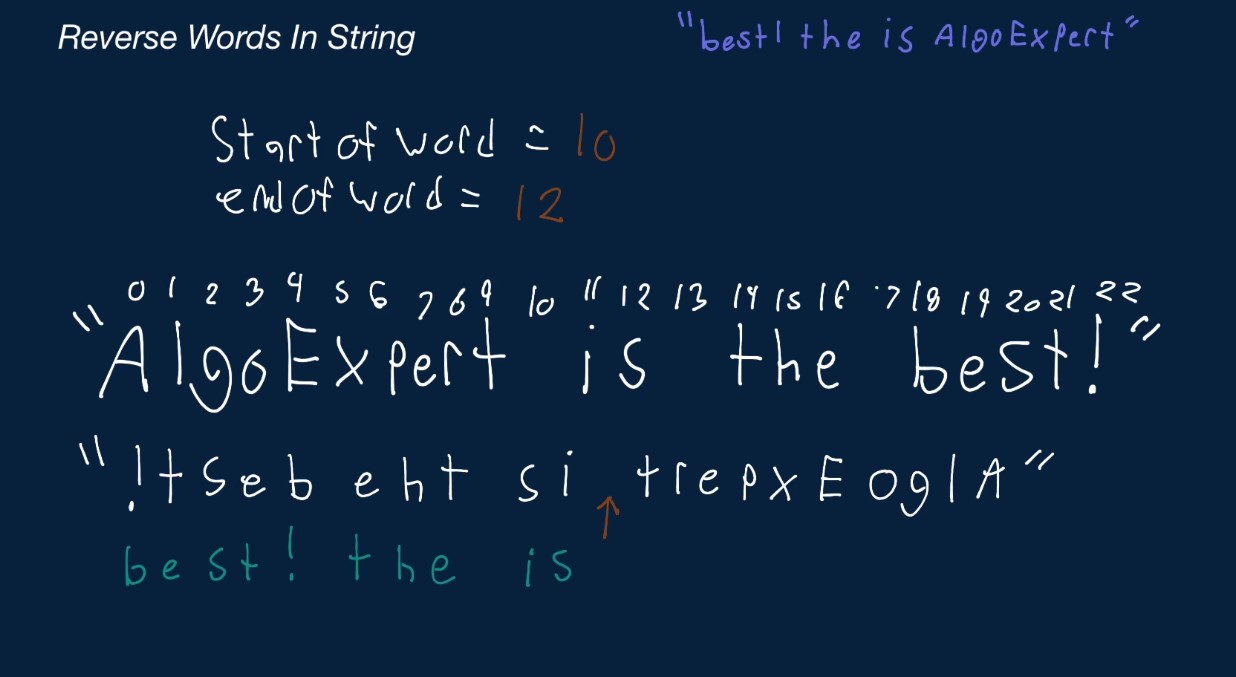 Reverse Words In String
"best! the is AlgoExpert"
Start of word = 10
end of word = 12
0 1 2 3 4 5 6 7 8 9 10 11 12 13 14 15 16 17 18 19 20 21 22
"AlgoExpert is the best!"
"!tseb eht si trepxEoglA"
↑
best! the is